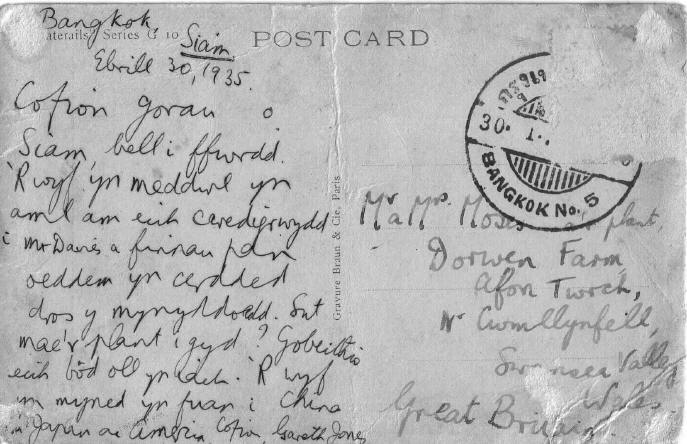 Bangkok,
aterails, Series G 10
Siam
Ebrill 30, 1935.
POST CARD
Cofion gorau o
Siam, bell i ffwrdd.
'R wyf yn meddwl yn
aml am eich caredigrwydd
i Mr Davies a finnau pan
oeddem yn cerdded
dros y mynyddoedd. Sut
mae'r plant i gyd? Gobeithio
eich bod oll yn iach. 'R wyf
yn myned yn fuan i China
i Japan ac America Cofion, Gareth Jones
Gravure Braun & Cie, Paris
30. 1.
BANGKOK No. 5
Mr a Mrs. Moses a'r plant,
Dorwen Farm,
Afon Twrch,
Nr Cwmllynfell,
Swansea Valley
Wales.
Great Britain